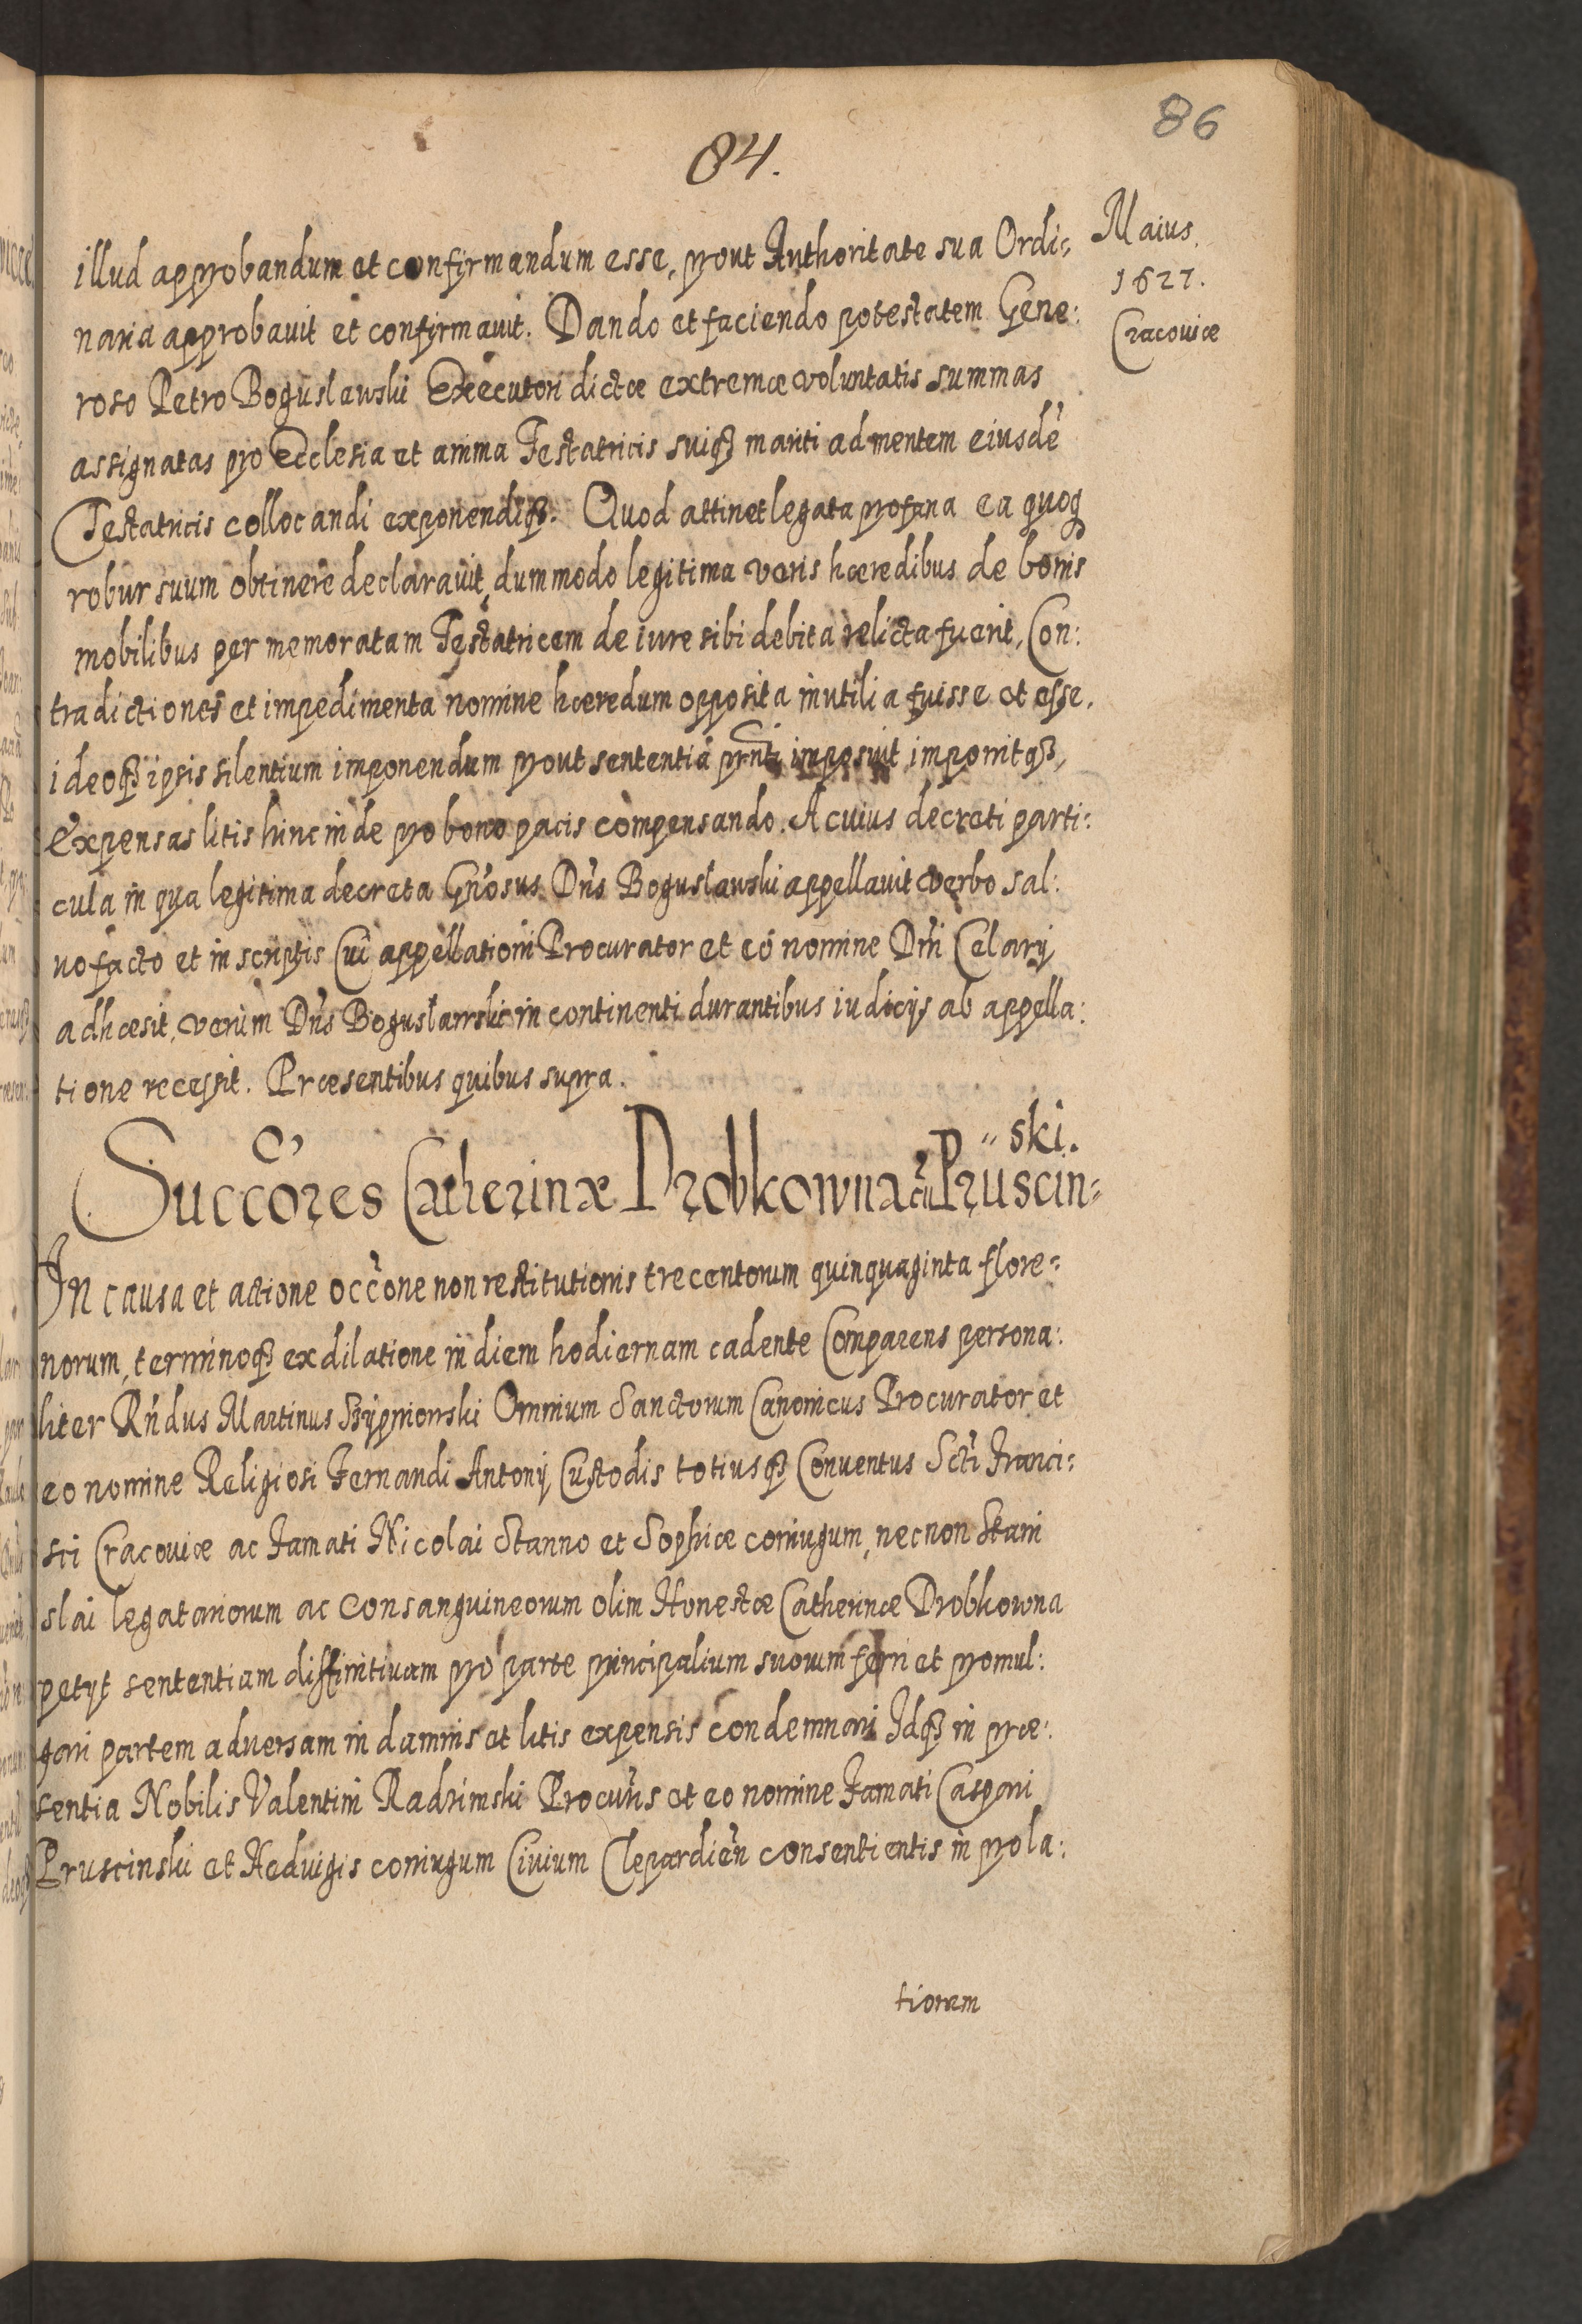 86
84.
Maius.
1627.
Cracouiæ
illud approbandum et confirmandum esse, prout Authoritate sua Ordi:
naria approbauit et confirmauit. Dando et faciendo potestatem Gene:
roso Petro Boguslawski Executori dictæ extremæ voluntatis summas
assignatas pro Ecclesia et anima Testatricis suiqꝫ mariti ad mentem eiusdē
Testatricis collocandi exponendiqꝫ. Quod attinet legata profana ea quoqꝫ
robur suum obtinere declarauit, dummodo legitima veris hæredibus de bonis
mobilibus per memoratam Testatricem de iure sibi debita relicta fuerit, Con:
tradictiones et impedimenta nomine hæredum opposita inutilia fuisse et esse,
ideoqꝫ ipsis silentium imponendum prout sententia pr̃nti imposuit imponitqꝫ,
Expensas litis hinc inde pro bono pacis compensando. A cuius decreti parti:
cula in qua legitima decreta Gñosus Dñs Boguslawski appellauit verbo sal:
uo facto et in scriptis Cui appellationi Procurator et eó nomine Dñi Celarij
adhæsit, verùm Dñs Bogusławski in continenti durantibus iudicijs ab appella:
tione recessit. Præsentibus quibus supra.
Succõres Catherinæ Drobkowna cũ Pruscin=
ski.
In causa et actione occõne non restitutionis trecentorum quinquaginta flore=
norum, terminoqꝫ ex dilatione in diem hodiernam cadente Comparens persona:
liter Rñdus Martinus Szÿpniowski Omnium Sanctorum Canonicus Procurator et
eo nomine Religiosi Fernandi Antonij Custodis totiusqꝫ Conuentus Scti Franci:
sci Cracouiæ ac Famati Nicolai Stanno et Sophiæ coniugum, necnon Stani
slai legatariorum ac consanguineorum olim Honestæ Catherinæ Drobkowna
petyt sententiam diffinitiuam pro parte principalium suorum ferri et promul:
gari partem aduersam in damnis et litis expensis condemnari Idqꝫ in præ:
sentia Nobilis Valentini Radzimski Procuris et eo nomine Famati Caspari
Pruscinski et Heduigis coniugum Ciuium Clepardieñ consentientis in prola:
tiorum